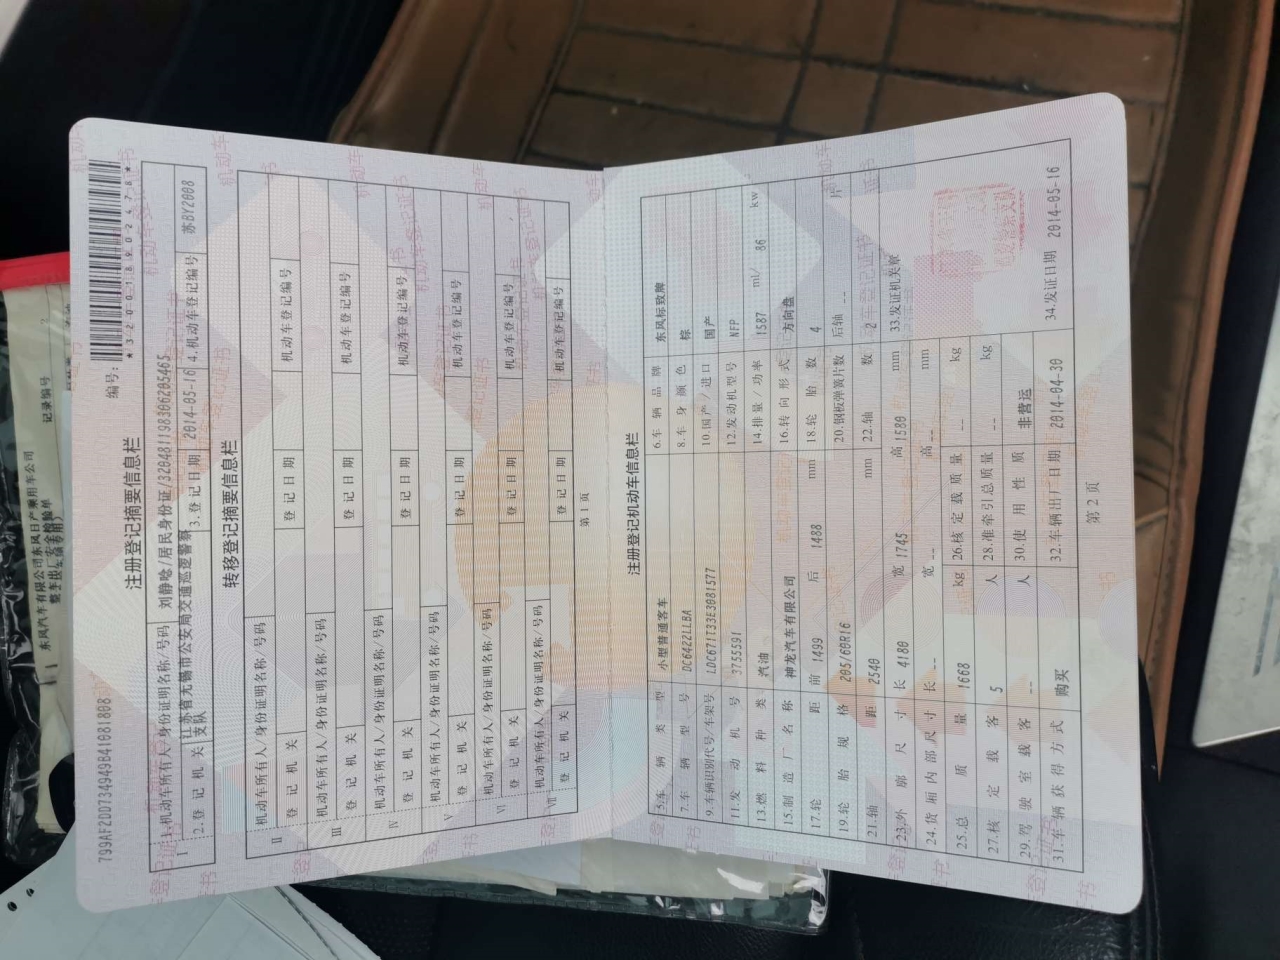 799AF2DD734949B41081808
编号:
*320018902478*
注册登记摘要信息栏
I
1.机动车所有人/身份证明名称/号码 刘静晗/居民身份证/320481198306205465
2.登记机关 江苏省无锡市公安局交通巡逻警察支队 3.登记日期 2014-05-16 4.机动车登记编号 苏BY2008
转移登记摘要信息栏
II 机动车所有人/身份证明名称/号码
登记机关 登记日期 机动车登记编号
III 机动车所有人/身份证明名称/号码
登记机关 登记日期 机动车登记编号
IV 机动车所有人/身份证明名称/号码
登记机关 登记日期 机动车登记编号
V 机动车所有人/身份证明名称/号码
登记机关 登记日期 机动车登记编号
VI 机动车所有人/身份证明名称/号码
登记机关 登记日期 机动车登记编号
VII 机动车所有人/身份证明名称/号码
登记机关 登记日期 机动车登记编号
第1页
注册登记机动车信息栏
5.车辆类型 小型普通客车 6.车辆品牌 东风标致牌
7.车辆型号 DC6422LLBA 8.车身颜色 棕
9.车辆识别代号/车架号 LDC671T33E3081577 10.国产/进口 国产
11.发动机号 3755591 12.发动机型号 NFP
13.燃料种类 汽油 14.排量/功率 1587 ml/ 86 kw
15.制造厂名称 神龙汽车有限公司 16.转向形式 方向盘
17.轮距 前 1499 后 1488 mm 18.轮胎数 4
19.轮胎规格 205/60R16 20.钢板弹簧片数 后轴 -- 片
21.轴距 2540 mm 22.轴数 2
23.外廓尺寸 长 4180 宽 1745 高 1580 mm 33.发证机关章
24.货厢内部尺寸 长 -- 宽 -- 高 -- mm
25.总质量 1668 kg 26.核定载质量 -- kg
27.核定载客 5 人 28.准牵引总质量 -- kg
29.驾驶室载客 -- 人 30.使用性质 非营运
31.车辆获得方式 购买 32.车辆出厂日期 2014-04-30 34.发证日期 2014-05-16
第2页
东风汽车有限公司东风日产乘用车公司
记录编号